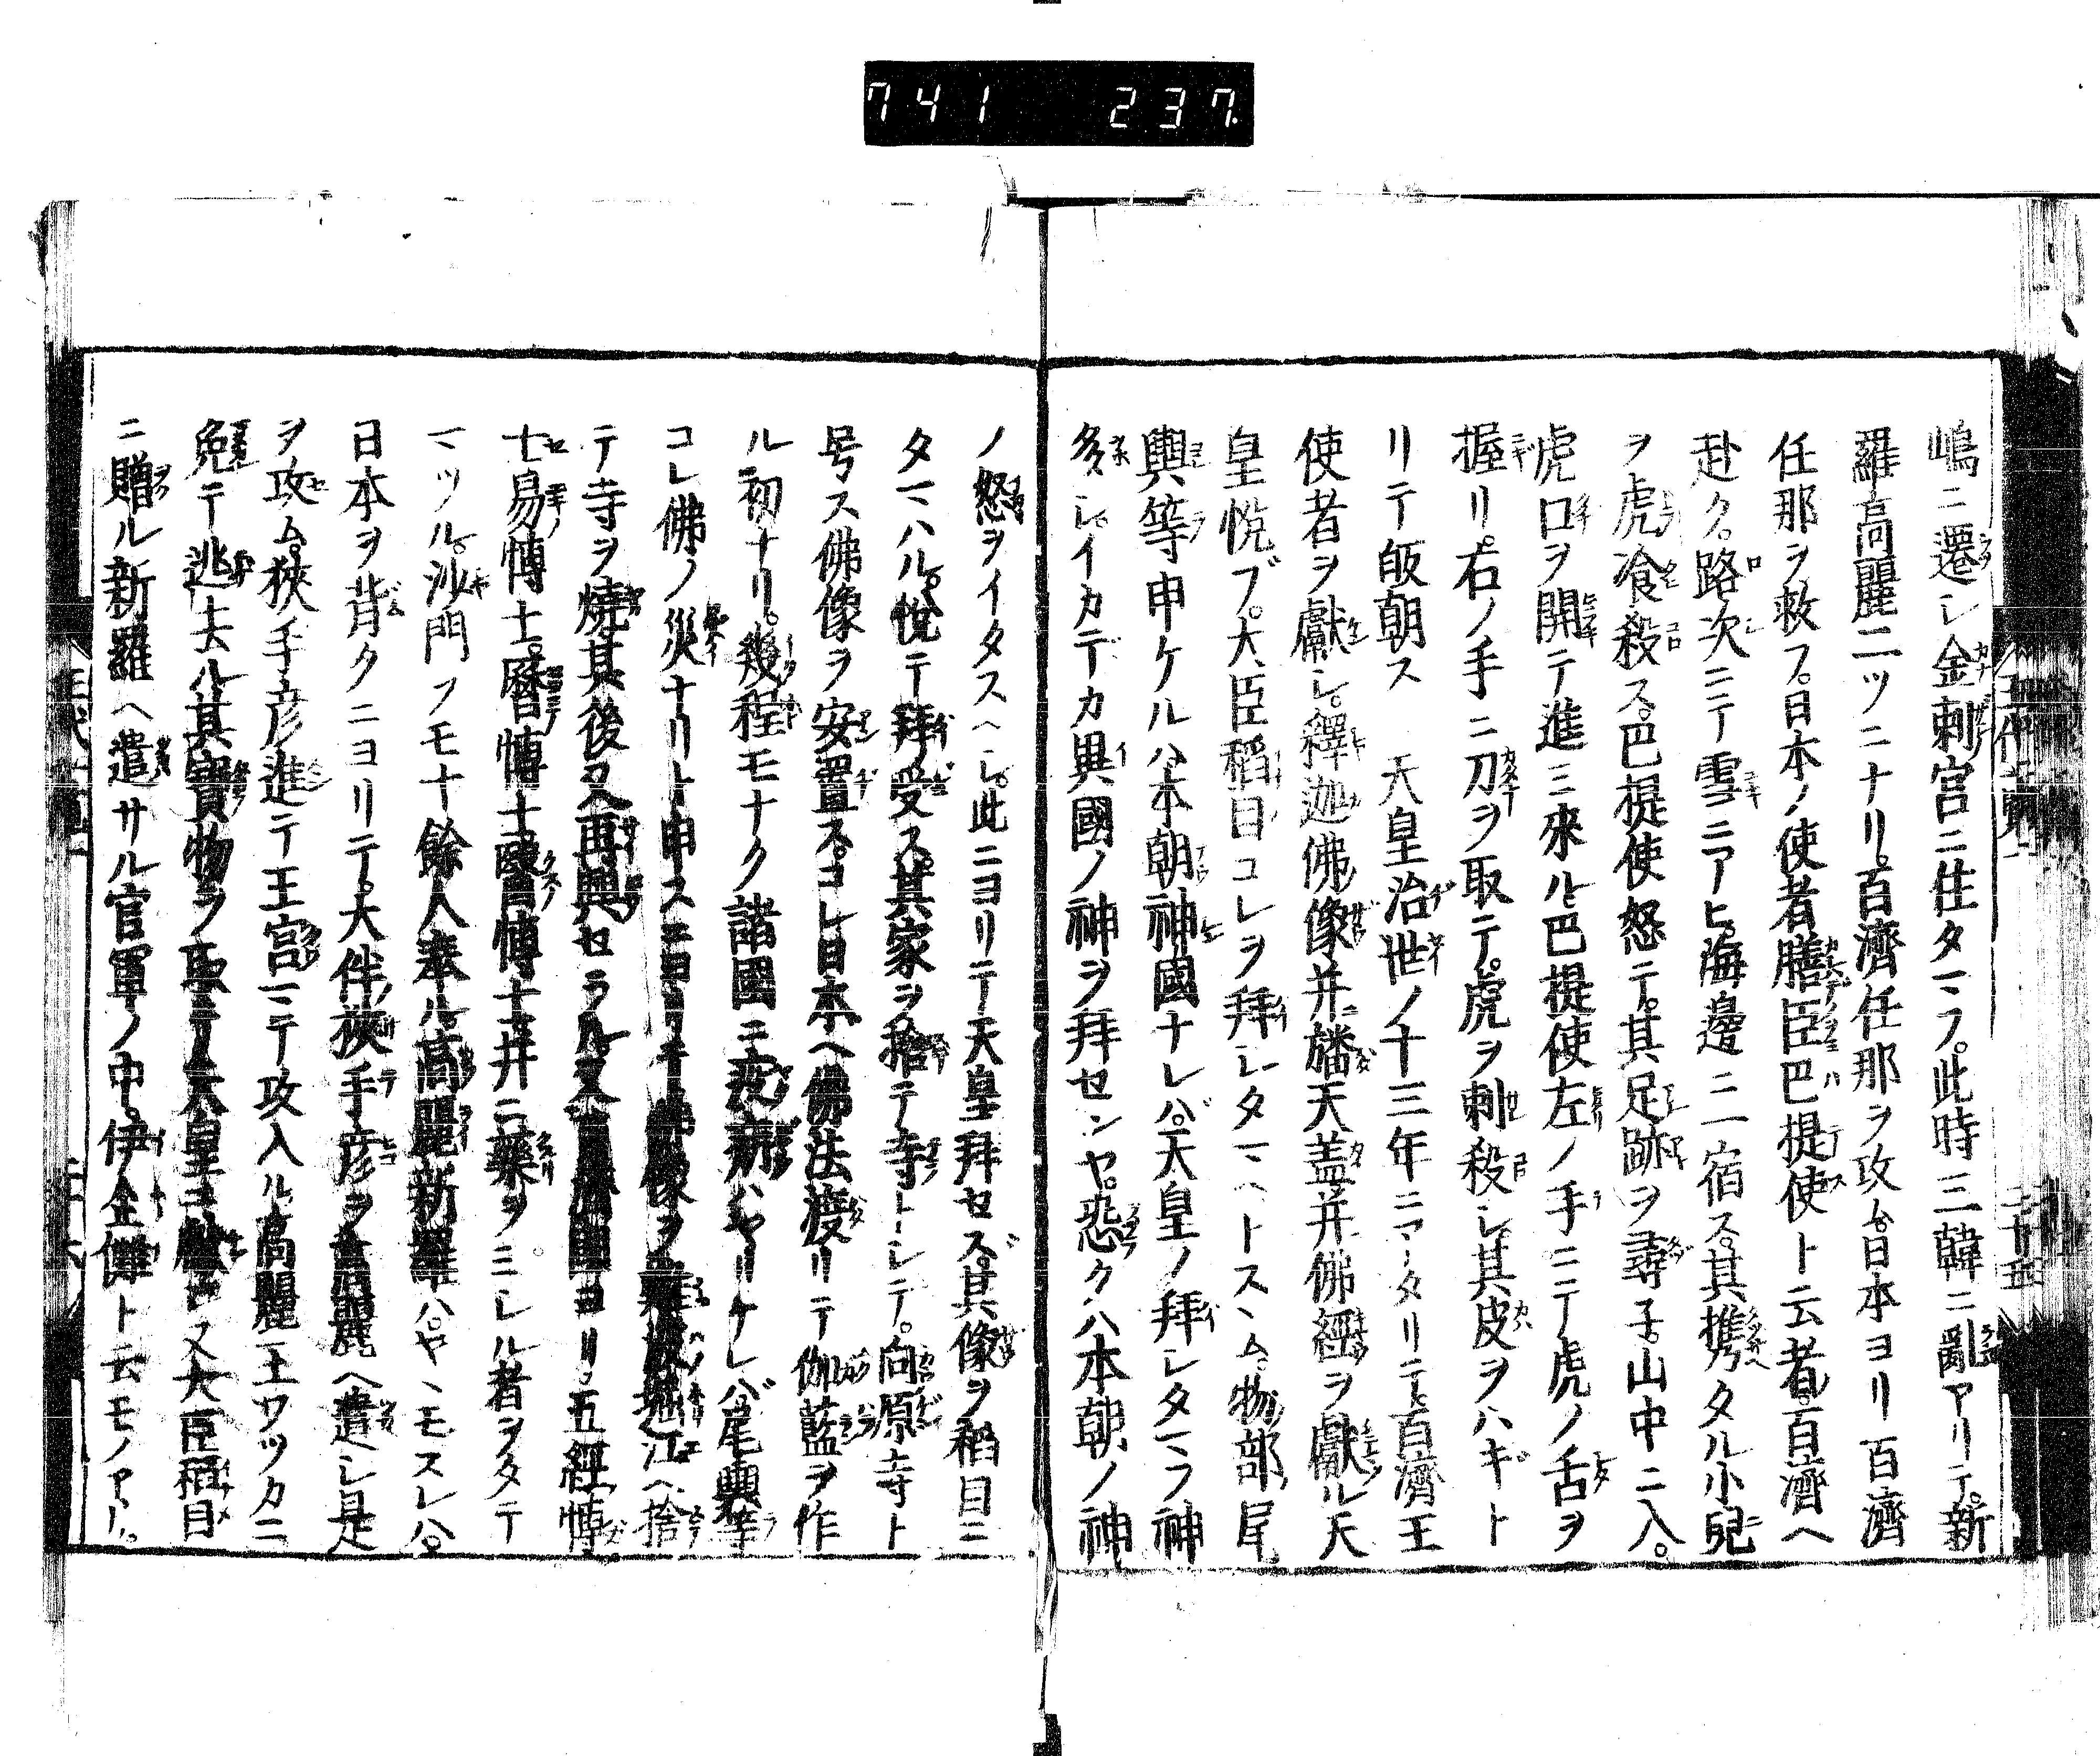 741 237.
嶋ニ遷シ金刺宮ニ住タマフ。此時三韓ニ亂アリテ。新
羅高麗二ツニナリ。百濟任那ヲ攻ム。日本ヨリ百濟
任那ヲ救フ。日本ノ使者膳臣巴提使ト云者。百濟ヘ
赴ク。路次ニテ雪ニアヒ。海邊ニ一宿ス。其携タル小兒
ヲ虎飡殺ス。巴提使怒テ。其足跡ヲ尋子。山中ニ入。
虎口ヲ開テ進ミ來ル。巴提使左ノ手ニテ虎ノ舌ヲ
握リ。右ノ手ニ刀ヲ取テ。虎ヲ刺殺シ其皮ヲハギト
リテ皈朝ス 天皇治世ノ十三年ニアタリテ。百濟王
使者ヲ獻シ。釋迦佛像并旛天盖并佛經ヲ獻ル天
皇悦ブ。大臣稻目コレヲ拜シタマヘトスヽム。物部尾
輿等申ケルハ。本朝神國ナレバ。天皇ノ拜シタマフ神
多シ。イカデカ異國ノ神ヲ拜センヤ。恐クハ本朝ノ神
ノ怒ヲイタスヘシ。此ニヨリテ天皇拜セズ。其像ヲ稻目ニ
タマハル。悅テ拜受ス。其家ヲ捨テ寺トシテ。向原寺ト
号ス佛像ヲ安置ス。コレ日本ヘ佛法渡リテ伽藍ヲ作
ル初ナリ。幾程モナク諸國ニ疫病ハヤリケレバ尾輿等
コレ佛ノ災ナリト申スニヨリテ佛像ヲ難波堀江ヘ捨
テ寺ヲ燒其後又再興セラル。又百濟國ヨリ。五經博
士易博士。曆博士醫博士并ニ藥ヲミシル者ヲタテ
マツル。沙門ヲモ十餘人奉ル。高麗新羅ハ。ヤヽモスレハ。
日本ヲ背クニヨリテ。大伴狹手彦ヲ高麗ヘ遣シ是
ヲ攻ム。狹手彦進テ王宮マテ攻入ル。高麗王ワツカニ
免テ逃去ル其寳物ヲ取テ天皇ニ獻シ又大臣稻目
ニ贈ル新羅ヘ遣サル官軍ノ中。伊企儺ト云モノアリ。